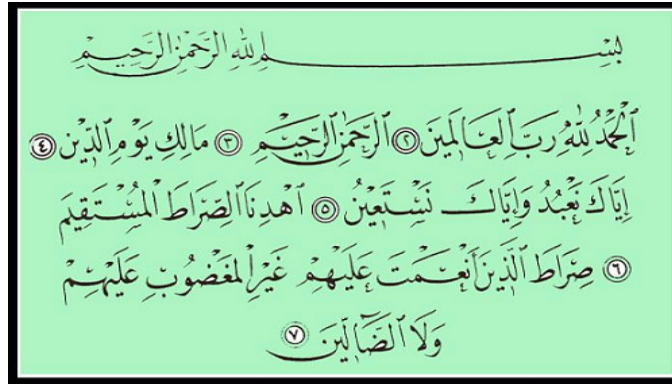 بِسْمِ اللهِ الرَّحْمٰنِ الرَّحِيْمِ
اَلْحَمْدُ لِلّٰهِ رَبِّ الْعَالَمِيْنَ ٢ اَلرَّحْمٰنِ الرَّحِيْمِ ٣ مَالِكِ يَوْمِ الدِّيْنِ ٤
اِيَّاكَ نَعْبُدُ وَاِيَّاكَ نَسْتَعِيْنُ ٥ اِهْدِنَا الصِّرَاطَ الْمُسْتَقِيْمَ
٦ صِرَاطَ الَّذِيْنَ اَنْعَمْتَ عَلَيْهِمْ غَيْرِ الْمَغْضُوْبِ عَلَيْهِمْ
وَلَا الضَّآلِّيْنَ ٧